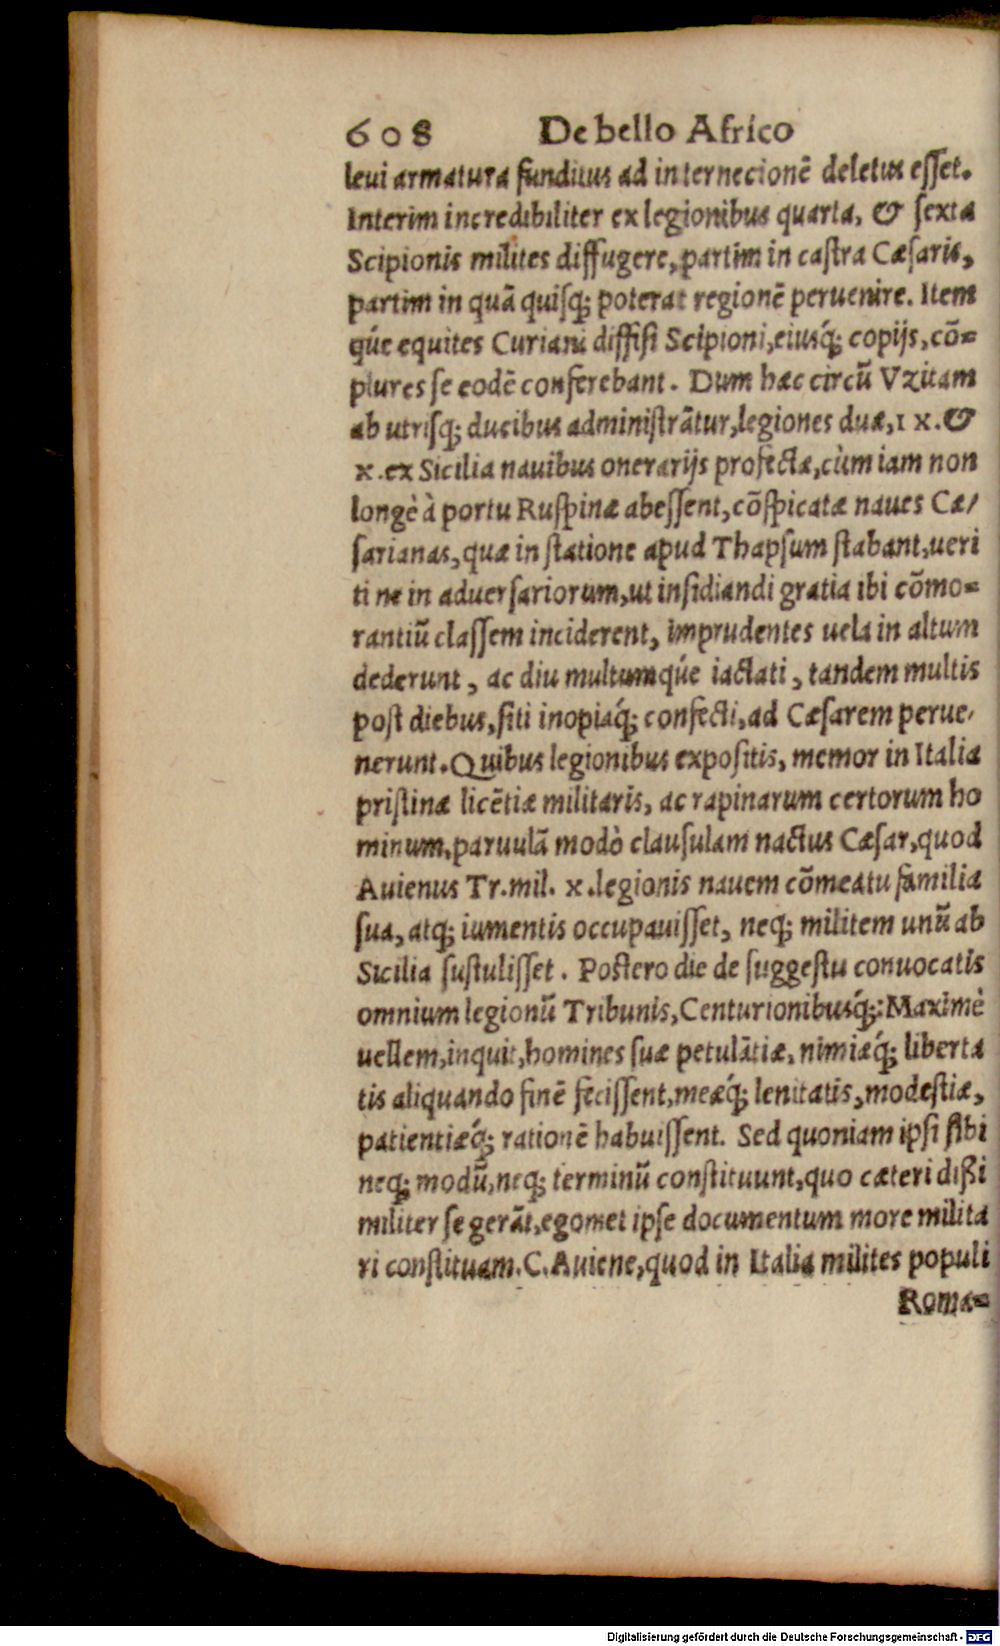 608 De bello Africo
leui armatura funditus ad internecionē deletus eſſet.
Interim incredibiliter ex legionibus quarta, & ſexta
Scipionis milites diffugere, partim in caſtra Cæſaris,
partim in quā quiſq; poterat regionē peruenire. Item
qúe equites Curiani diffiſi Scipioni, eiusq́; copijs, cō=
plures ſe eodē conferebant. Dum hæc circū Vzitam
ab utriſq; ducibus adminiſtrātur, legiones duæ, IX. &
X. ex Sicilia nauibus onerarijs profectæ, cùm iam non
longè à portu Ruſpinæ abeſſent, cōſpicatæ naues Cæ/
ſarianas, quæ in ſtatione apud Thapſum ſtabant, ueri
ti ne in aduerſariorum, ut inſidiandi gratia ibi cōmo=
rantiū claſſem inciderent, imprudentes uela in altum
dederunt, ac diu multumqúe iactati, tandem multis
poſt diebus, ſiti inopiaq́; confecti, ad Cæſarem perue/
nerunt. Quibus legionibus expoſitis, memor in Italia
priſtinæ licētiæ militaris, ac rapinarum certorum ho
minum, paruulā modò clauſulam nactus Cæſar, quod
Auienus Tr. mil. x. legionis nauem cōmeatu familia
ſua, atq; iumentis occupauiſſet, neq; militem unū ab
Sicilia ſuſtuliſſet. Poſtero die de ſuggeſtu conuocatis
omnium legionū Tribunis, Centurionibusq́;: Maximè
uellem, inquit, homines ſuæ petulātiæ, nimiæq́; liberta
tis aliquando finē feciſſent, meæq́; lenitatis, modeſtiæ,
patientiæq́; rationē habuiſſent. Sed quoniam ipſi ſibi
neq; modū, neq; terminū conſtituunt, quo cæteri dißi
militer ſe gerāt, egomet ipſe documentum more milita
ri conſtituam. C. Auiene, quod in Italia milites populi
Roma=
Digitalisierung gefördert durch die Deutsche Forschungsgemeinschaft - DFG